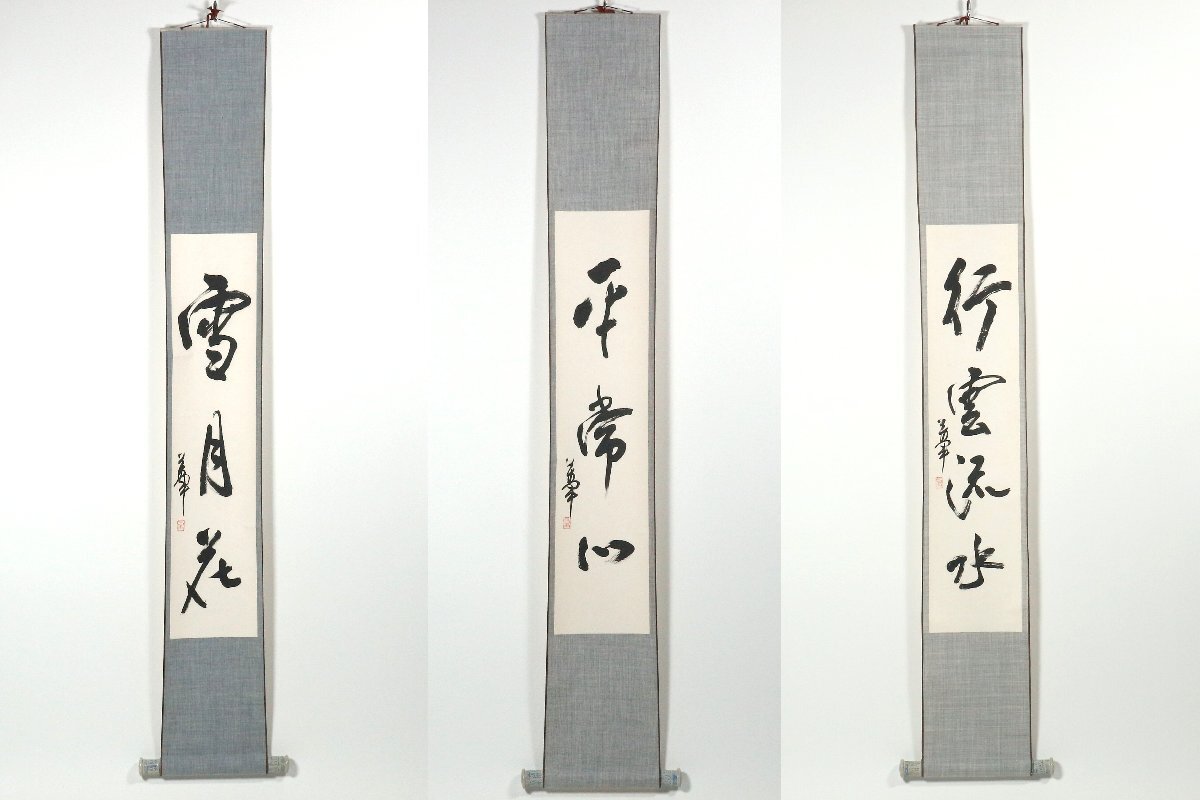 雪月花
平常心
行雲流水